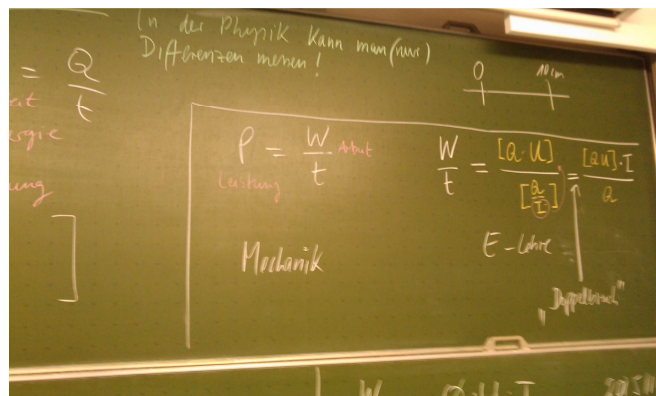 In der Physik kann man (nur)
Differenzen messen!
= Q/t
ergie
ung
0 10 cm
P = W/t Arbeit
Leistung
W/t = [Q·U]/[Q/I] = [QU]·I/Q
Mechanik
E-Lehre
"Doppelbruch"
W